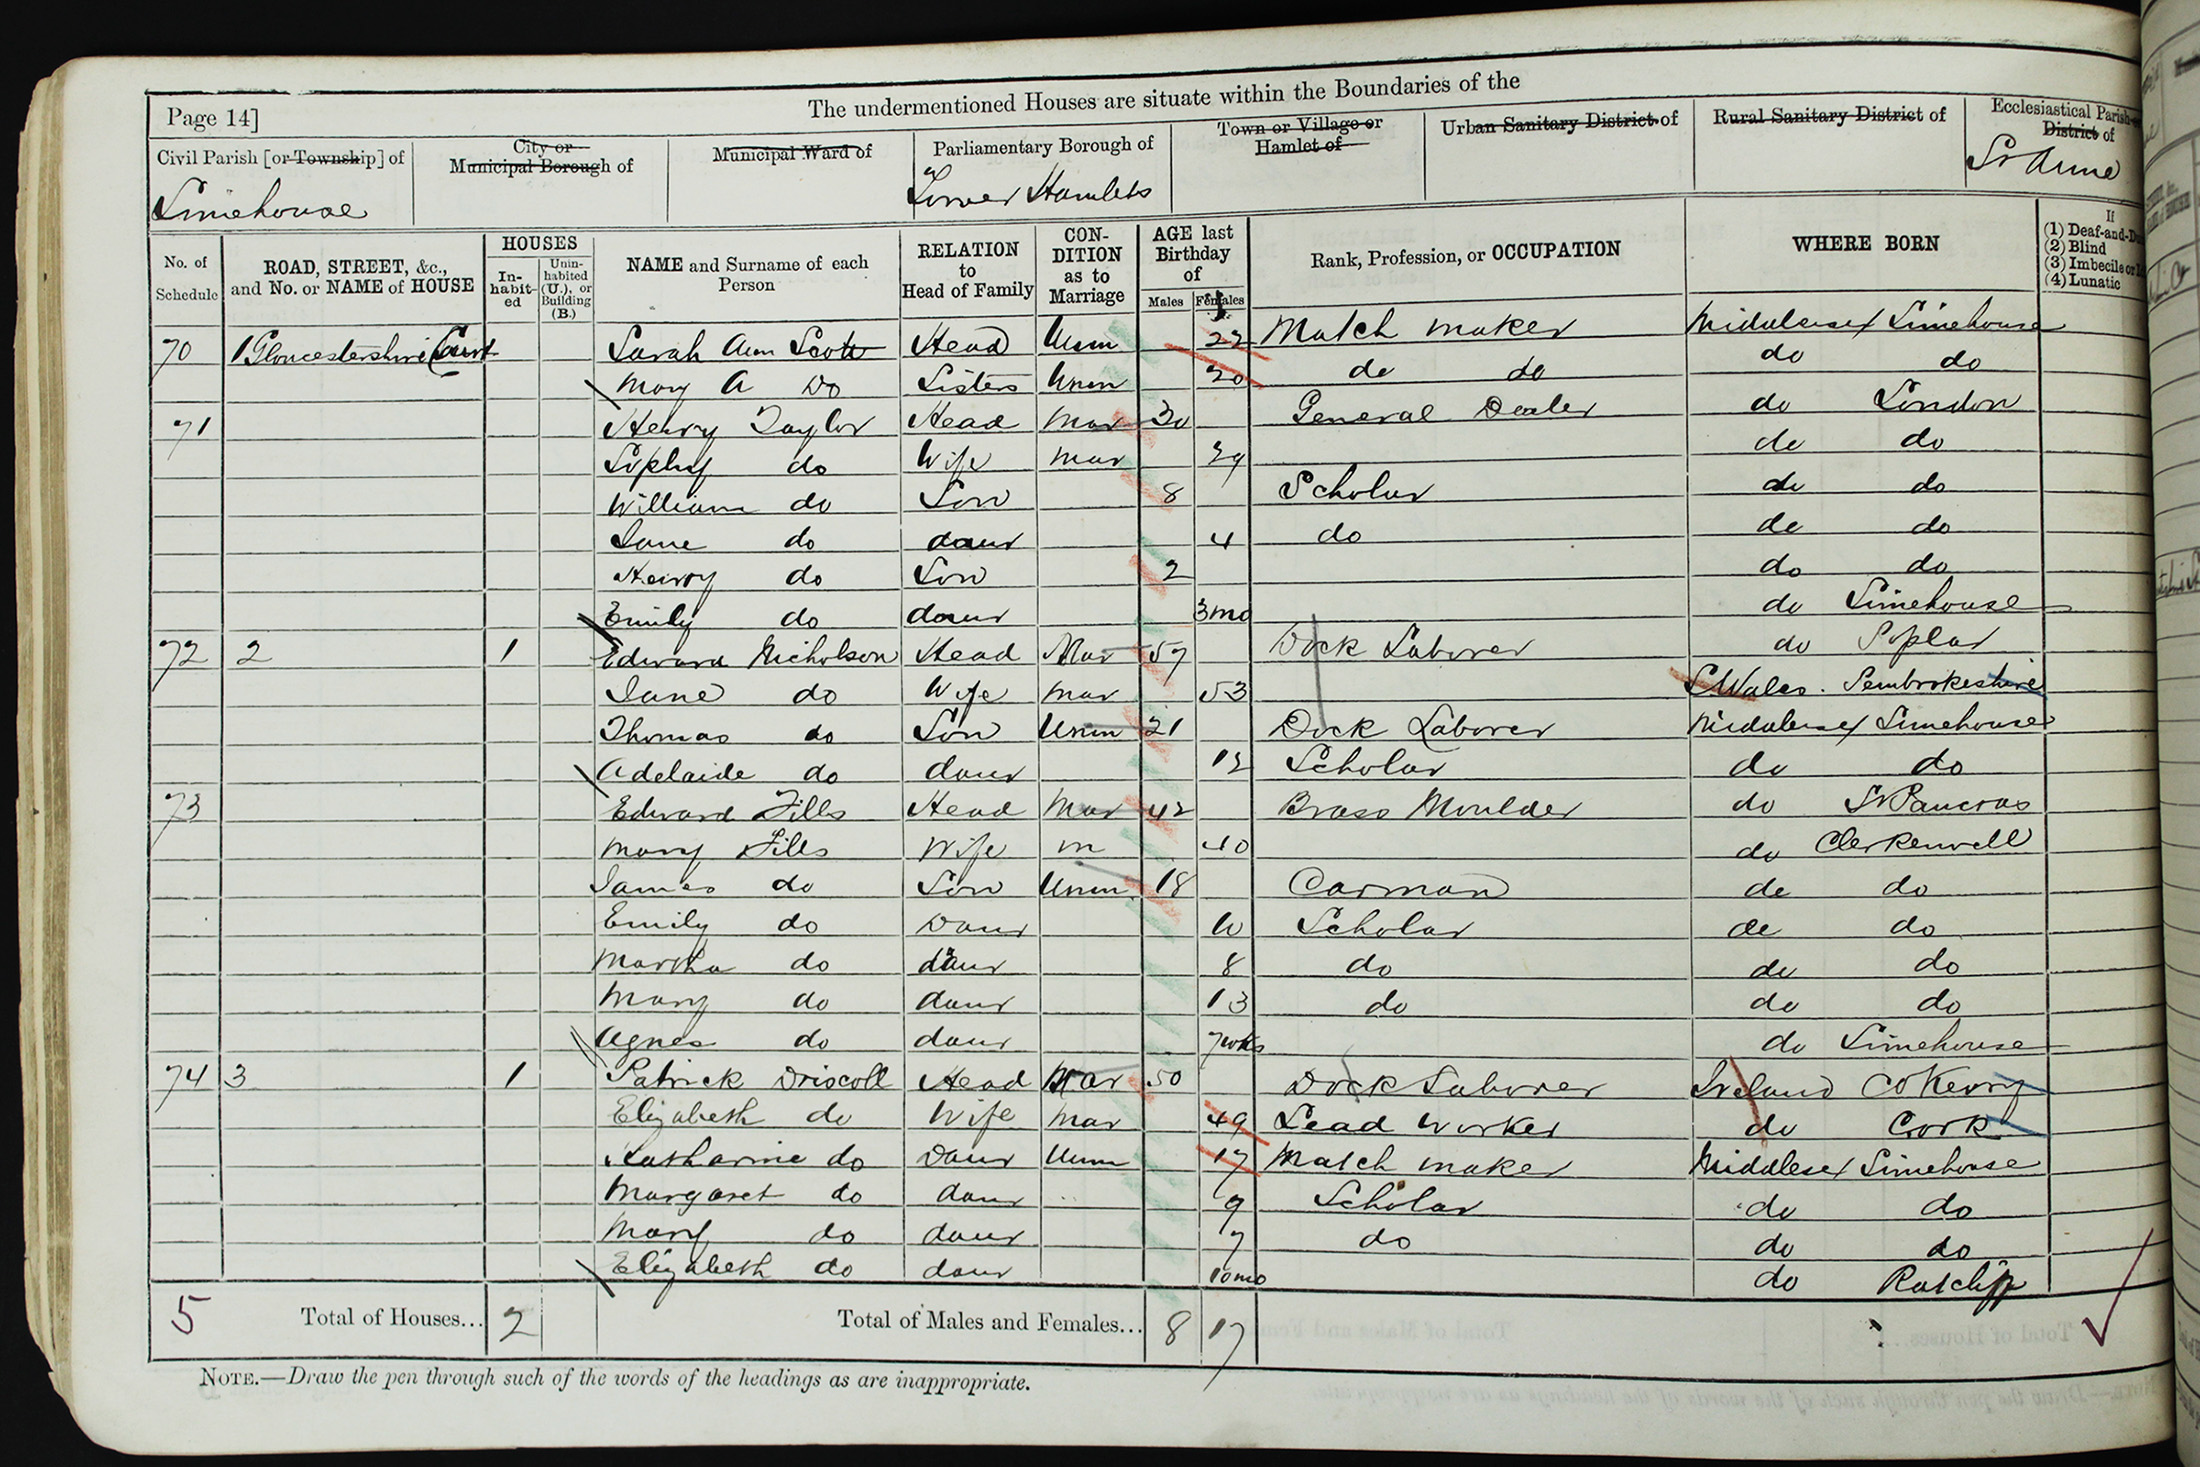 The undermentioned Houses are situate within the Boundaries of the
Page 14]
Civil Parish [or Township] of
City or Municipal Borough of
Municipal Ward of
Parliamentary Borough of
Town or Village or Hamlet of
Urban Sanitary District of
Rural Sanitary District of
Ecclesiastical Parish District of
Limehouse Tower Hamlets St Anne
No. of Schedule
ROAD, STREET, &c., and No. or NAME of HOUSE
HOUSES
In-habit-ed
Unin-habited (U.), or Building (B.)
NAME and Surname of each Person
RELATION to Head of Family
CON-DITION as to Marriage
AGE last Birthday of
Males Females
Rank, Profession, or OCCUPATION
WHERE BORN
If
(1) Deaf-and-D
(2) Blind
(3) Imbecile or
(4) Lunatic
70 1 Gloucestershire Court Sarah Ann Scott Head Unm 22 Match maker Middlesex Limehouse
Mary A Do Sisters Unm 20 do do do do
71 Henry Taylor Head Mar 30 General Dealer do London
Sophy do Wife Mar 29 do do
William do Son 8 Scholar do do
Jane do daur 4 do do do
Henry do Son 2 do do
Emily do daur 3mo do Limehouse
72 2 1 Edward Nicholson Head Mar 57 Dock Laborer do Poplar
Jane do Wife Mar 53 S Wales. Pembrokeshire
Thomas do Son Unm 21 Dock Laborer Middlesex Limehouse
Adelaide do daur 12 Scholar do do
73 Edward Tills Head Mar 42 Brass Moulder do St Pancras
Mary Tills Wife m 40 do Clerkenwell
James do Son Unm 18 Carman do do
Emily do Daur Scholar do do
Martha do daur 8 do do do
Mary do daur 13 do do do
Agnes do daur 7wks do Limehouse
74 3 1 Patrick Driscoll Head Mar 50 Dock Laborer Ireland Co Kerry
Elizabeth do Wife Mar 49 Lead Worker do Cork
Katharine do Daur Unm 17 Match maker Middlesex Limehouse
Margaret do daur 9 Scholar do do
Mary do daur 7 do do do
Elizabeth do daur 10mo do Ratcliff
5 Total of Houses... 2 Total of Males and Females... 8 17
NOTE.—Draw the pen through such of the words of the headings as are inappropriate.